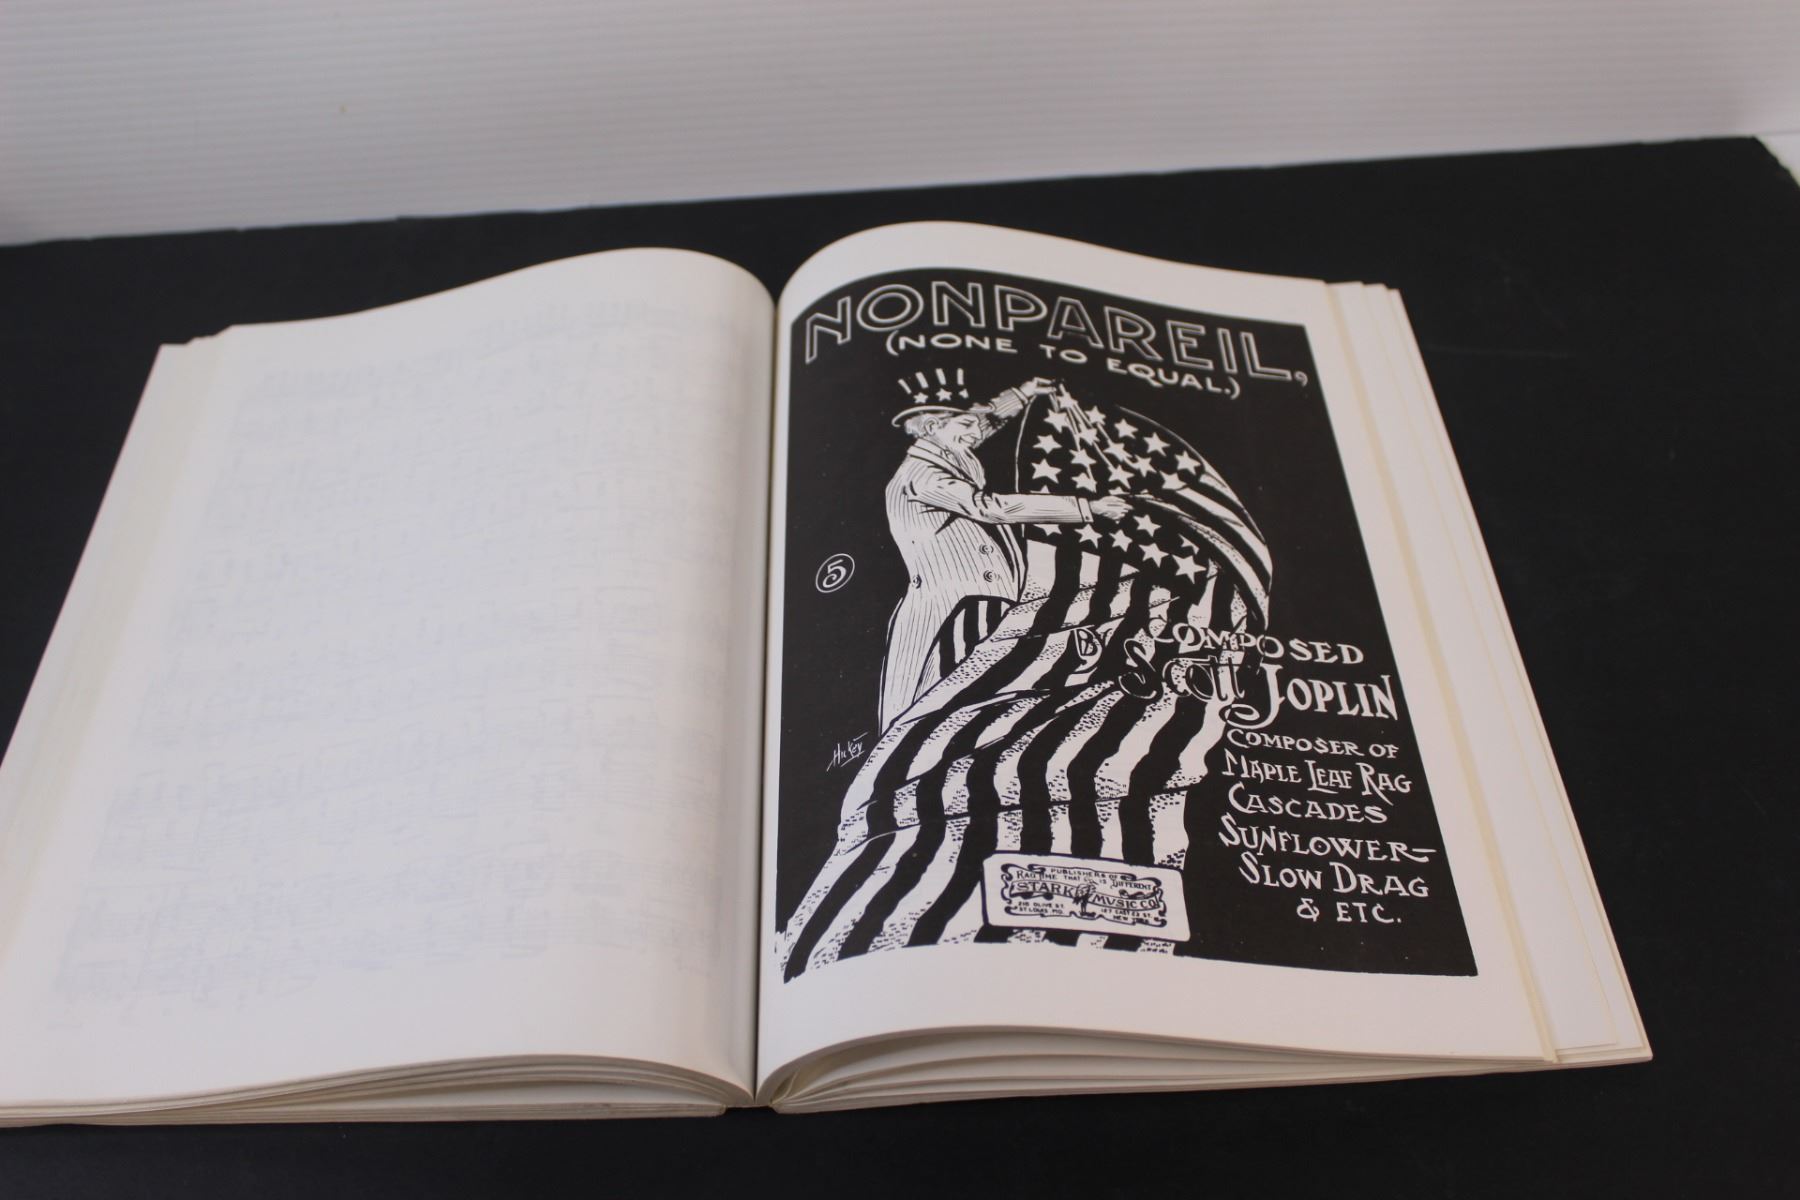 NONPAREIL,
(NONE TO EQUAL.)
5
COMPOSED
BY Scott JOPLIN
COMPOSER OF
MAPLE LEAF RAG
CASCADES
SUNFLOWER-
SLOW DRAG
& ETC.
Hickey
PUBLISHERS OF
RAGTIME THAT IS DIFFERENT
STARK MUSIC CO
210 OLIVE ST. 127 EAST 23 ST.
ST LOUIS. MO. NEW YORK